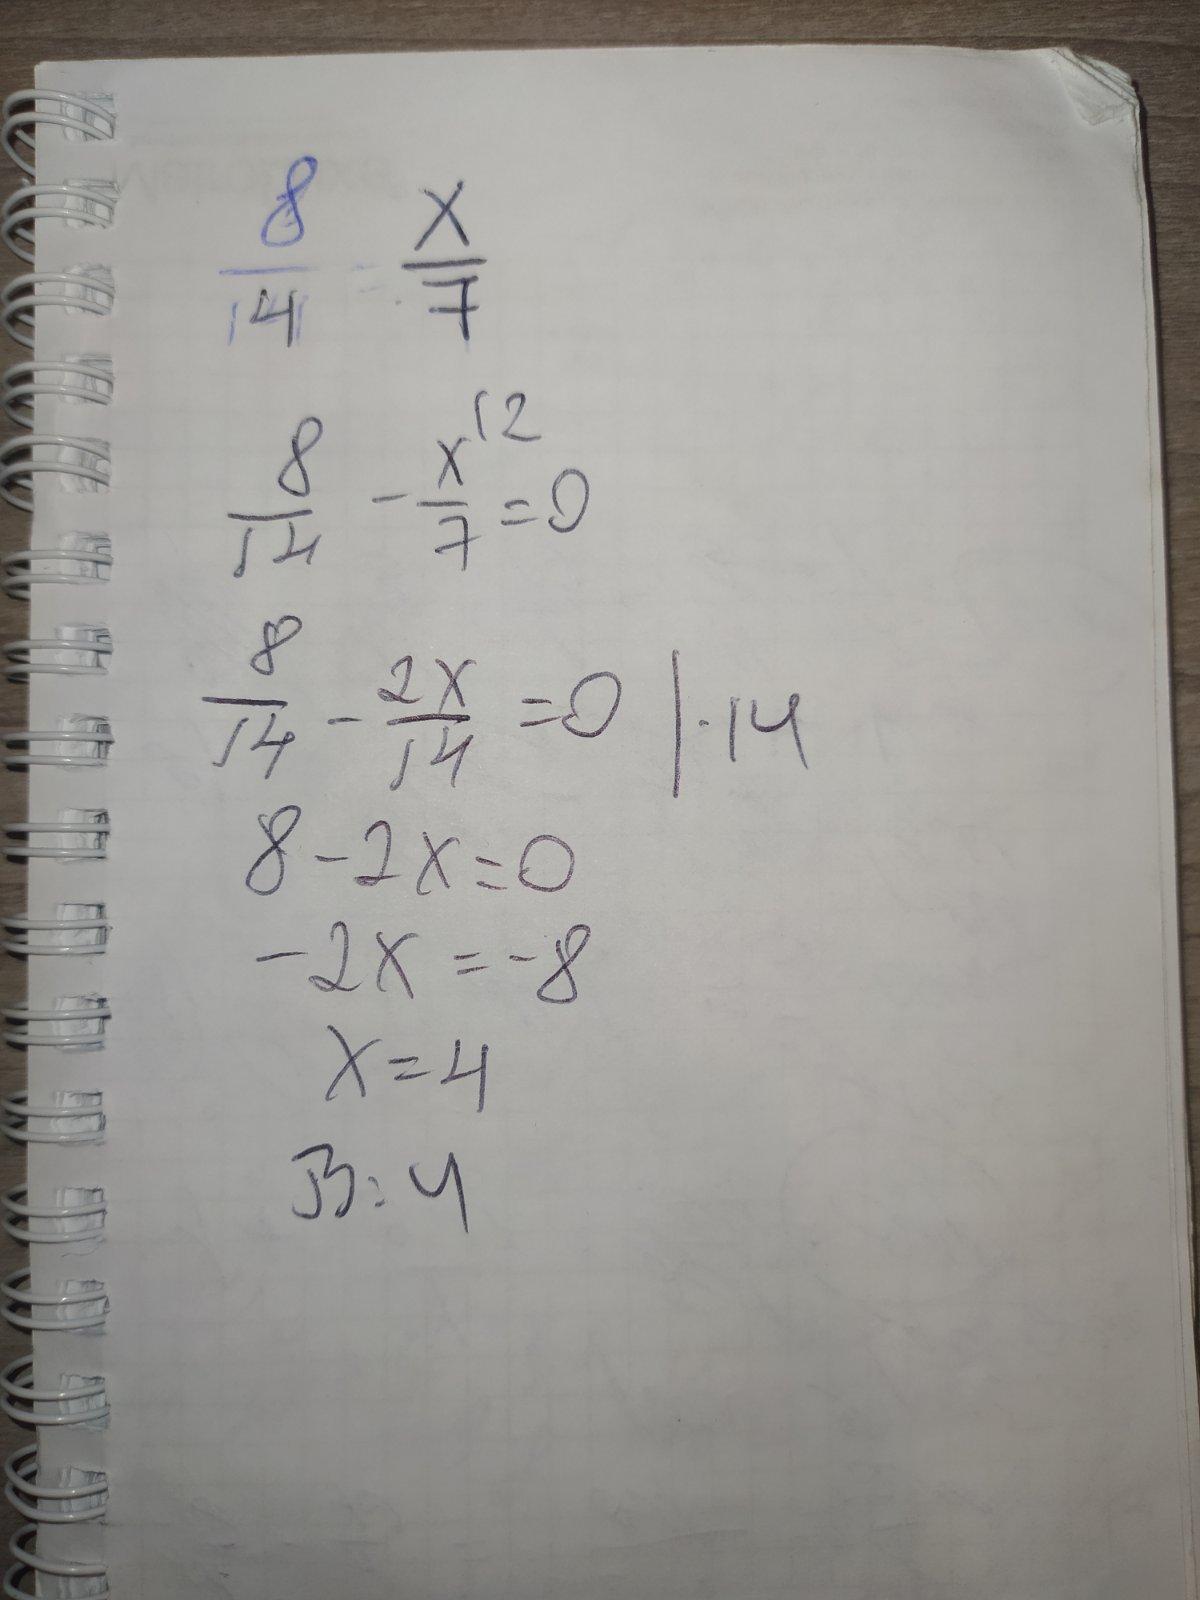 8/14 = x/7
8/14 - x/7 |2 = 0
8/14 - 2x/14 = 0 | · 14
8 - 2x = 0
-2x = -8
x = 4
В: 4